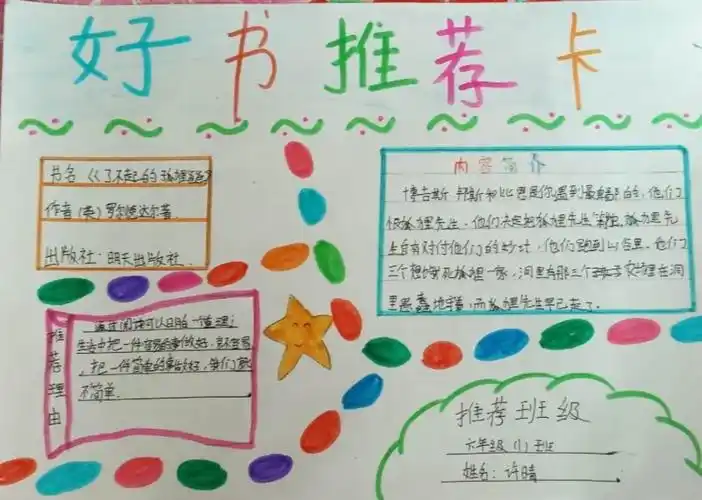 好书推荐卡
书名《《了不起的狐狸爸爸》
作者(英)罗尔德达尔著
出版社:明天出版社.
内容简介
博吉斯 邦斯和比恩是你遇到最 的,他们
恨狐狸先生.他们决定把狐狸先生 狐狸先
生自有对付他们的妙计,他们跑到山谷里.他们
三个想 死狐狸一家,洞里有那三个 在洞
里愚蠢地 而狐狸先生早已 了.
推荐理由
通过阅读可以明白一道理:
生活中把一件容易的事做好,就不容易
,把一件简单的事做好,我们就
不简单.
推荐班级
六年级(1)班
姓名:许晴